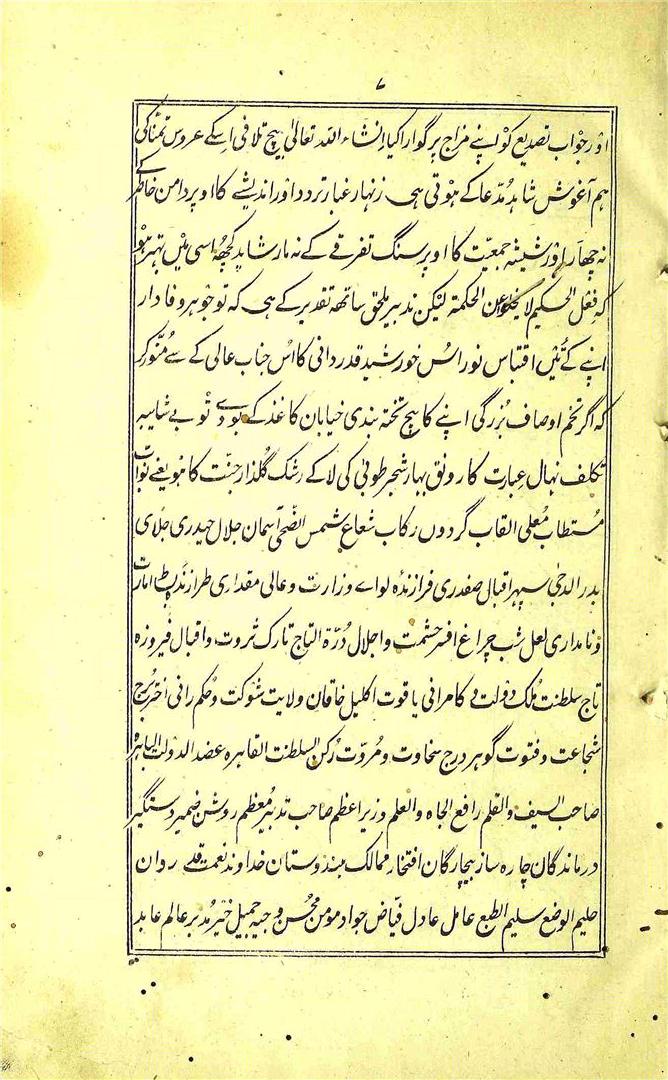 ۷
اور جواب تصدیع کو اپنے مزاج پر گوارا کیا انشاء اللہ تعالیٰ بیچ تلافی اسکے عروس تمنا کی
ہم آغوش شاہد مُدّعا کے ہوتی ہی زنہار غبار تردد اور اندیشے کا اوپر دامن خاطر کے
نہ چھاڑ اور شیشہ جمعیّت کا اوپر سنگ تفرقے کے نہ مار شاید کچھہ اسی میں بہتر ہو
کہ فعل الحکیم لا یخلو عن الحکمة لیکن تدبیر ملحق ساتھہ تقدیر کے ہی کہ تو جوہر وفادار
اپنے کے تئیں اقتباس نور اُس خورشید قدردانی کا اُس جناب عالی کے سے مُنّور کر
کہ اگر تخم اوصاف بُزرگی اپنے کا بیچ تختہ بندی خیابان کاغذ کے بووے تو بے شایبہ
تکلف نہال عبارت کا رونق بہار شجر طوبیٰ کی لا کے رشک گلذار جنّت کا ہو یعنے نواب
مُستطاب مُعلی القاب گردوں رکاب شعاع شمس الضّحیٰ آسمان جلال حیدری جلای
بدر الدجیٰ سپہر اقبال صفدری فرازندہ لواے وزارت و عالی مقداری طرازندہ بساط امارت
و نامداری لعل شب چراغ افسر حشمت و اجلال دُرّة التاج تارک ثروت و اقبال فیروزہ
تاج سلطنت مُلک دولت و کامرانی یاقوت اکلیل خاقان ولایت شوکت و حکم رانی اختر بُرج
شجاعت و فتوت گوہر درج سخاوت و مُروّت رُکن السلطنت القاہرہ عضد الدولت الباہرہ
صاحب السیف والقلم رافع الجاہ والعلم وزیر اعظم صاحب تدبیر مُعظم روشن ضمیر دستگیر
درماندگان چارہ ساز بیچارگان افتخار ممالک ہندوستان خداوند نعمت روان
حلیم الوضع سلیم الطبع عامل عادل فیّاض جواد مومن مُحسن وجیہ جمیل خیّر مُدبر عالم عابد